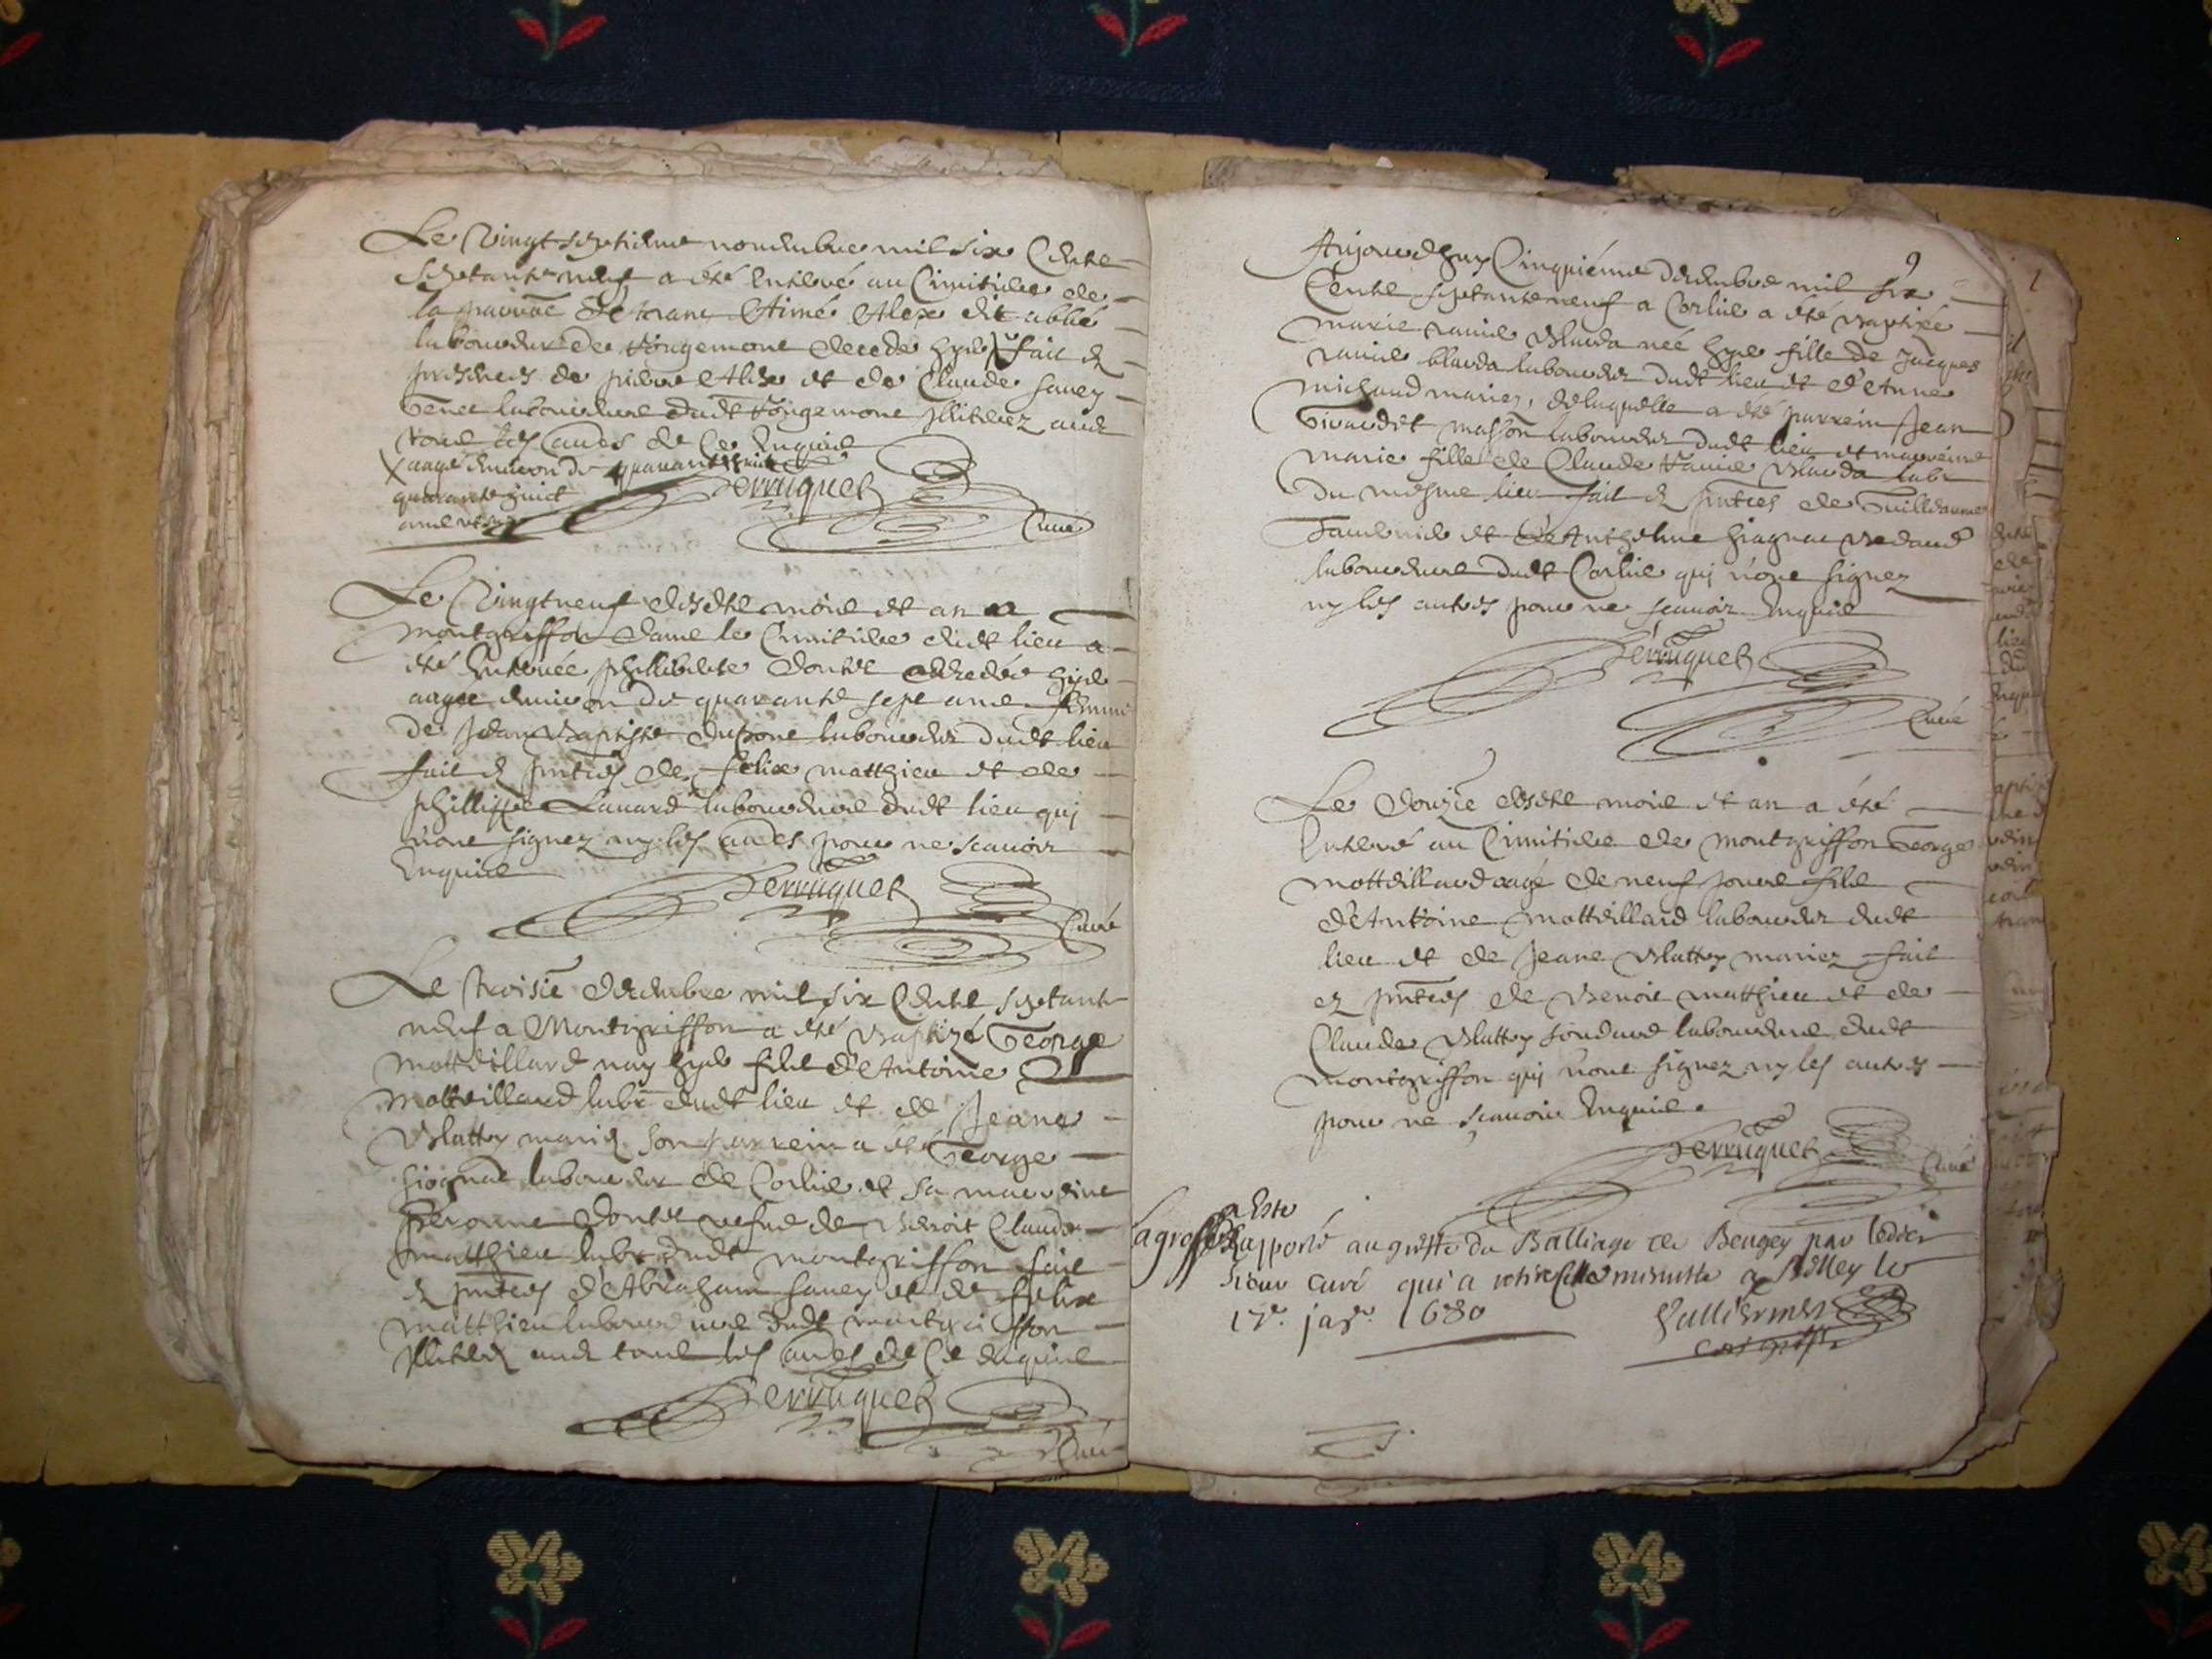 Le vingt septieme novembre mil six cents
septante neuf a été enterré au cimitiere de
la parroe d'étrans Aimé Alex dit abbé
laboureur de rougemont decedé hyer fait ez
presences de pierre Alex et de Claude savey
laboureurs dudt rougemont illiterez avec
tous les autres de ce enquis
aagé environ de quarante huit
quarante huict
ans
Perruquet
Curé
Le vingtneuf desdts mois et an a
montgriffon dans le cimitiere dudt lieu a
été enterrée phillibete decedée hyer
aagée environ de quarante sept ans femme
de Jean Baptiste dupont laboureur dudt lieu
fait ez pntces de felix matthieu et de
phillippe Lavard laboureurs dudt lieu qui
n'ont signez ny les autres pour ne scavoir
enquis
Perruquet
Curé
Le troisie decembre mil six cents septante
neuf a Montgriffon a été baptizé George
mottoillard nay hyer fils d'Antoine
Mottoillard labr dudt lieu et de Jeane
blattay mariez son parrein a été George
laboureur de Corlie et sa marreine
peronne vefve de Benoit Claude
matthieu labr dudt montgriffon fait
ez pntces d'Abraham savey et de felix
matthieu laboureurs dudt montgriffon
illiterez avec tous les autres de ce enquis
Perruquet
Curé
9
Aujourd'huy cinquiéme decembre mil six
cents septante neuf a Corlie a été baptizée
marie née hyer fille de Jacques
laboureur dudt lieu et d'Anne
michaud mariez, de laquelle a été parrein Jean
masson laboureur dudt lieu et marreine
marie fille de Claude labr
du mesme lieu fait ez pntces de Guilleaume
et d'Anthelme
laboureurs dudt Corlie qui n'ont signez
ny les autres pour ne scavoir enquis
Perruquet
Curé
Le douzie desdts mois et an a été
enterré au cimitiere de montgriffon George
mottoillard aagé de neuf jours fils
d'Antoine mottoillard laboureur dudt
lieu et de Jeane blattay mariez fait
ez pntces de Benoit matthieu et de
Claude blattay laboureurs dudt
montgriffon qui n'ont signez ny les autres
pour ne scavoir enquis.
Perruquet
Curé
a este
la grosse Rapporté au greffe du Balliage de Beugey par ledit
sieur curé qui a retiré cette minutte a Belley le
17e janr 1680